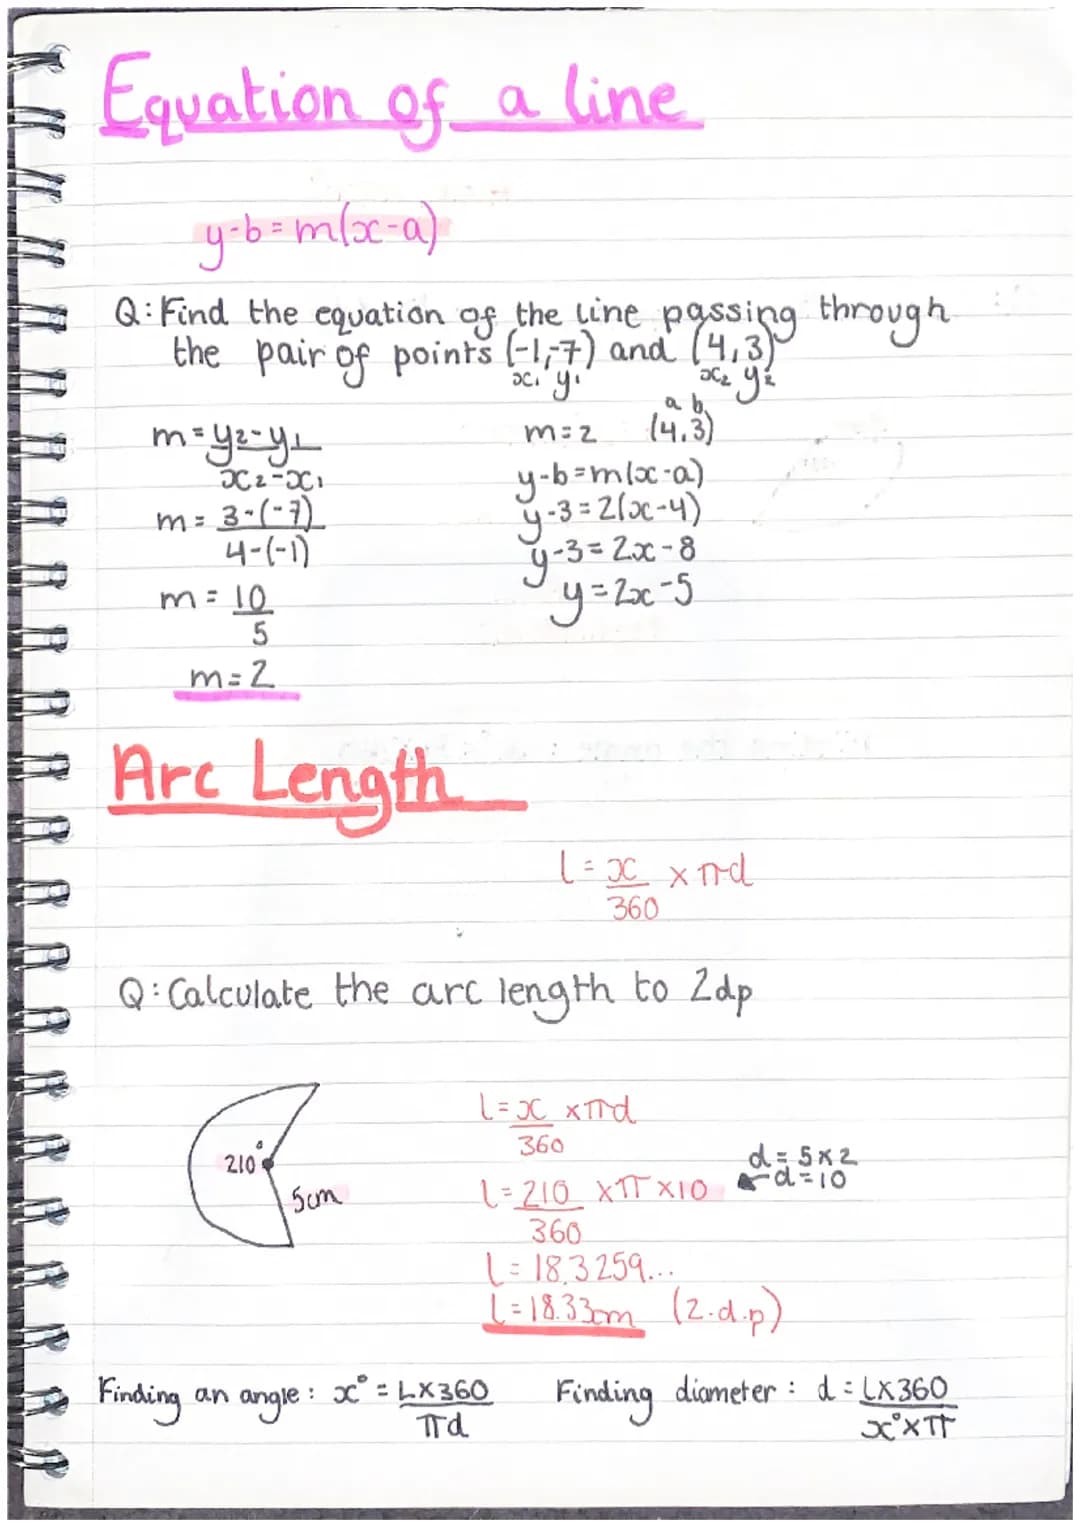 Equation of a line
y-b=m(x-a)
Q: Find the equation of the line passing through
the pair of points (-1,-7) and (4,3)
x₁ y₁ x₂ y₂
m = y₂-y₁
x₂-x₁
m = 3-(-7)
4-(-1)
m = 10
5
m = 2
a b
m=2 (4,3)
y-b=m(x-a)
y-3=2(x-4)
y-3=2x-8
y=2x-5
Arc Length
l = x × πd
360
Q: Calculate the arc length to 2dp
210°
5cm
l = x × πd
360
l = 210 × π × 10
360
d = 5×2
d = 10
l = 18.3259...
l = 18.33cm (2.d.p)
Finding an angle: x° = L×360
πd
Finding diameter: d = L×360
x°×π